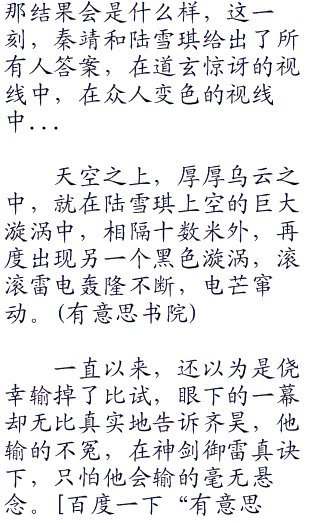 那结果会是什么样，这一
刻，秦靖和陆雪琪给出了所
有人答案，在道玄惊讶的视
线中，在众人变色的视线
中...
天空之上，厚厚乌云之
中，就在陆雪琪上空的巨大
漩涡中，相隔十数米外，再
度出现另一个黑色漩涡，滚
滚雷电轰隆不断，电芒窜
动。(有意思书院)
一直以来，还以为是侥
幸输掉了比试，眼下的一幕
却无比真实地告诉齐昊，他
输的不冤，在神剑御雷真诀
下，只怕他会输的毫无悬
念。[百度一下“有意思